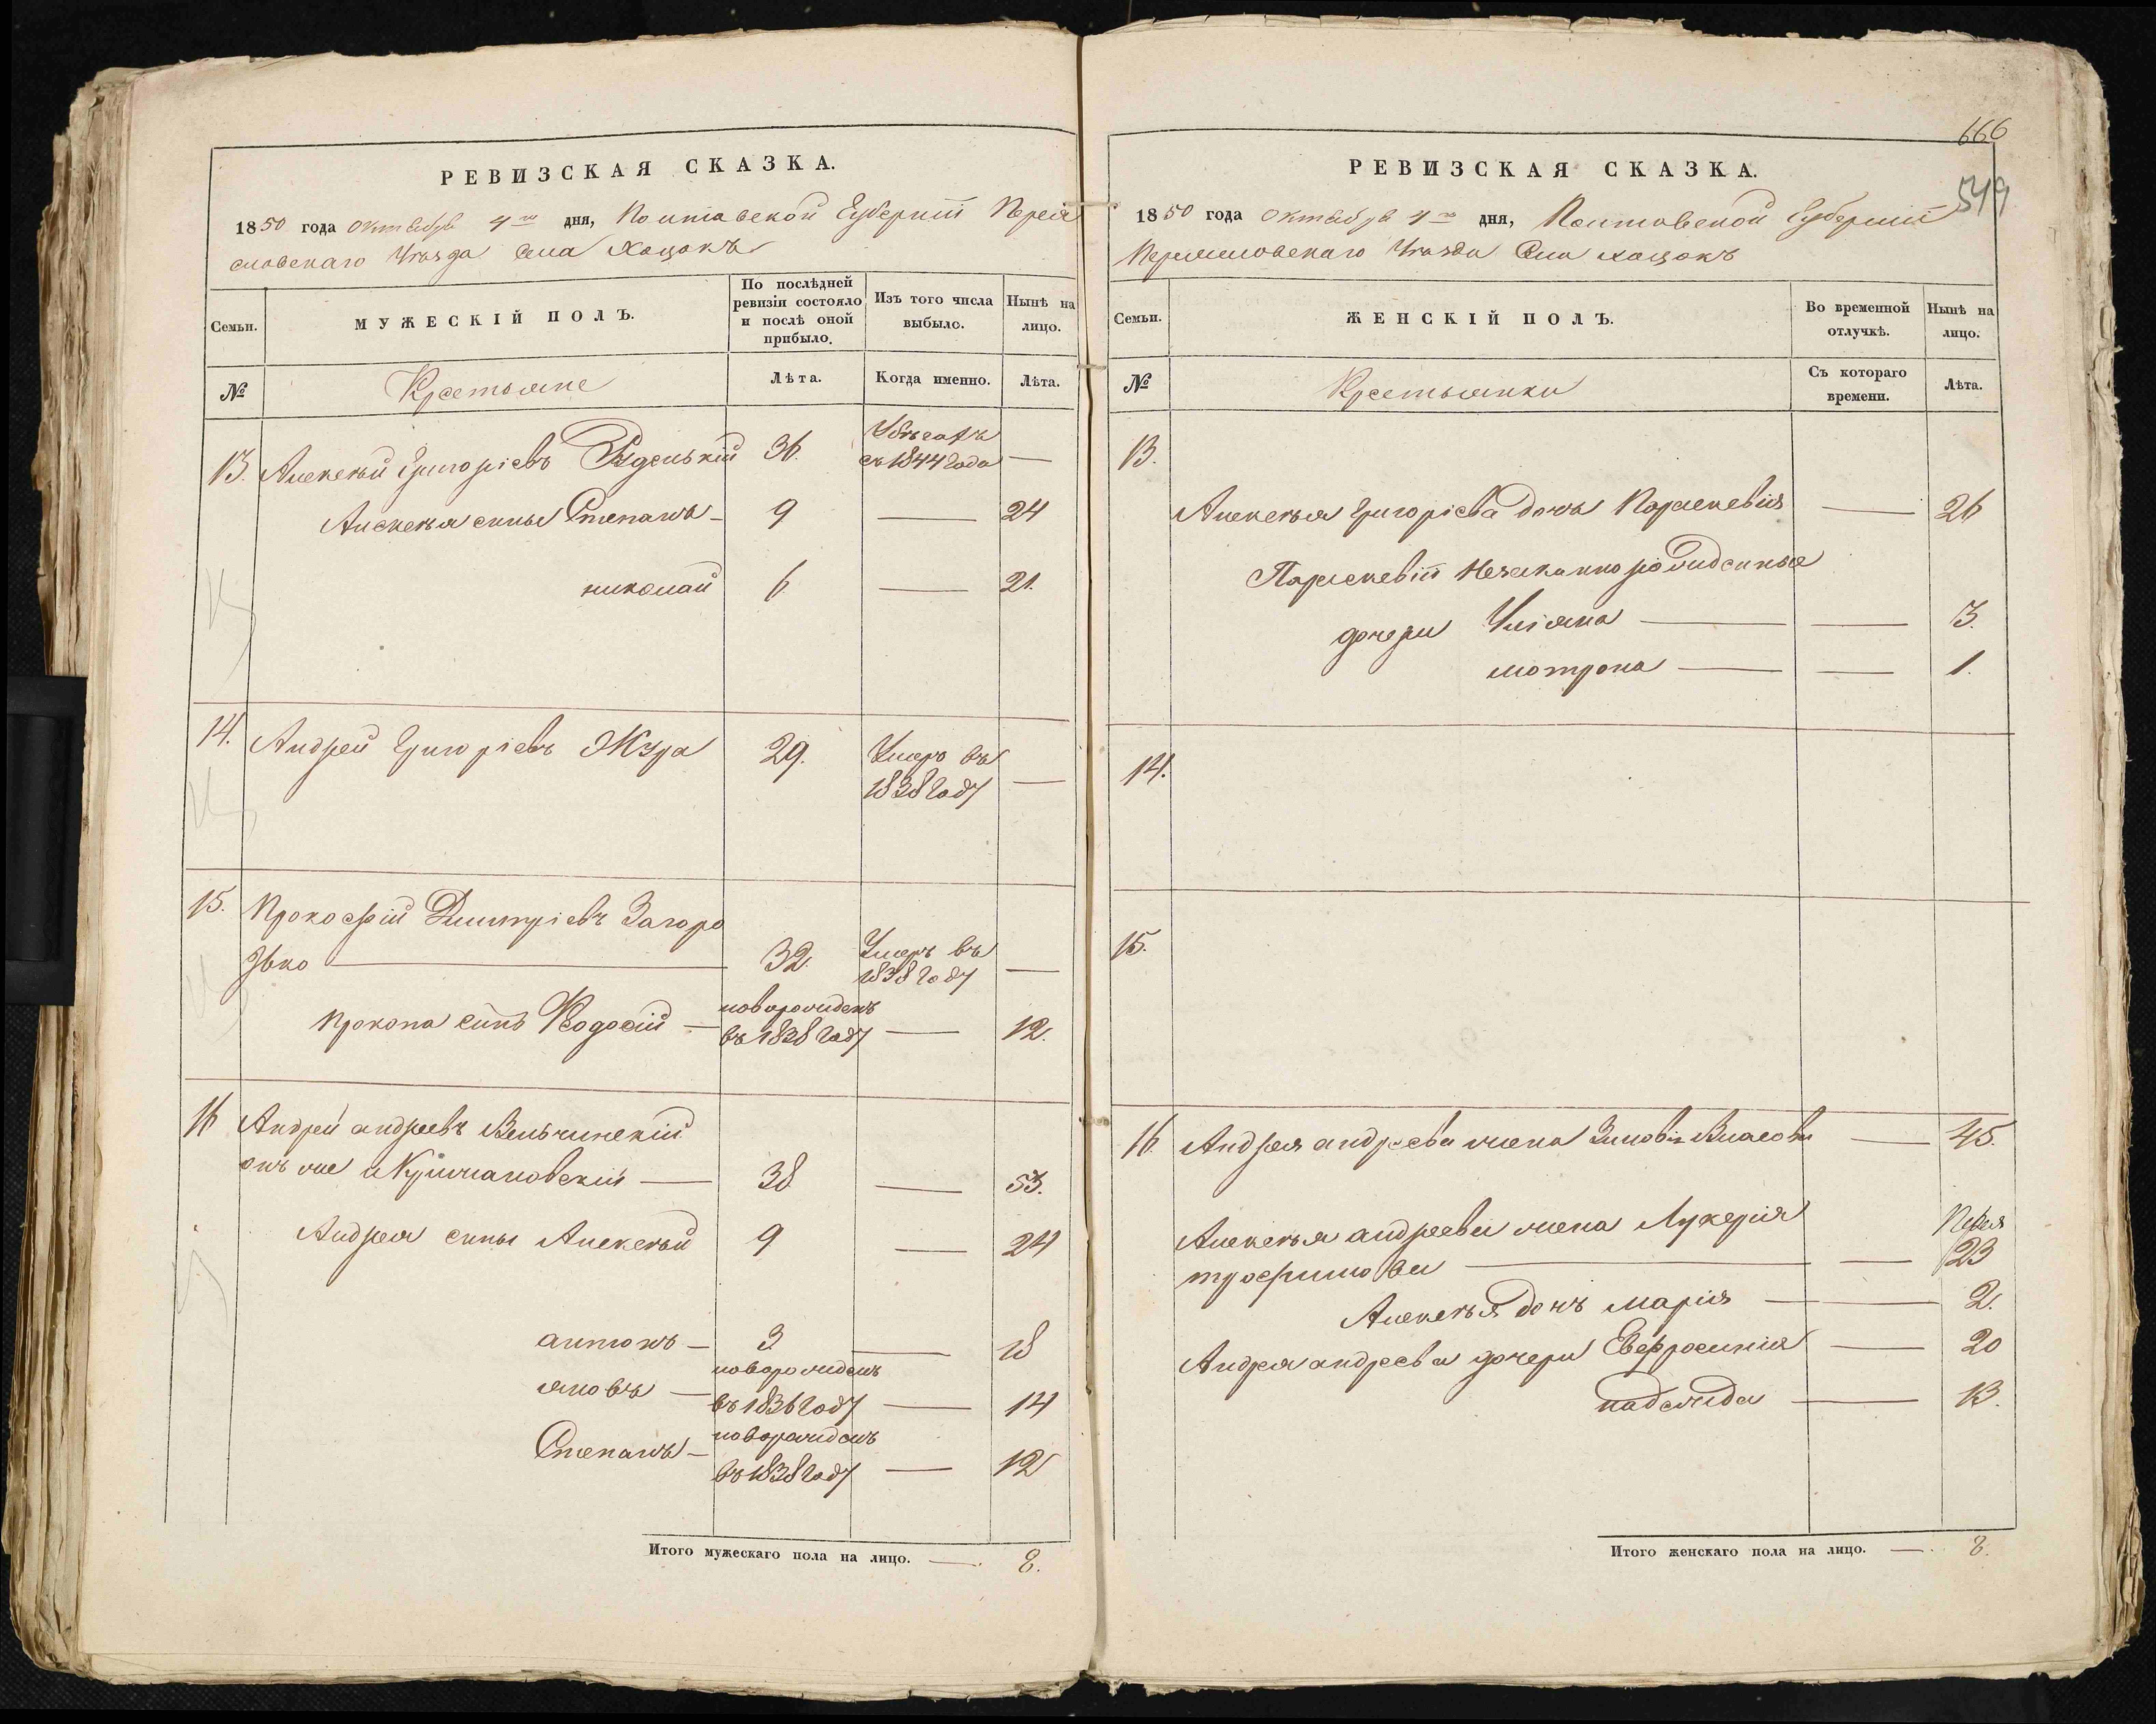 РЕВИЗСКАЯ СКАЗКА.
1850 года октября 4го дня, Полтавской Губерніи Перея
славскаго Уѣзда Села Хоцокъ
Семьи.
МУЖЕСКІЙ ПОЛЪ.
По послѣдней
ревизіи состояло
и послѣ оной
прибыло.
Изъ того числа
выбыло.
Нынѣ на
лицо.
№
Крестьяне
Лѣта.
Когда именно.
Лѣта.
13. Алексѣй Григоріевъ 36. —
съ 1844 года
Алексѣя сины Степанъ — 9 — 24
николай 6 — 21.
14. Андрей Григоріевъ 29. Умеръ въ
1838 году —
15. Прокофій Дмитріевъ Загоро
32. Умеръ въ
1838 году —
Прокопа синъ Феодосій — новорожденъ
въ 1838 году — 12.
16 Андрей андреевъ Вельчинскій
онъ же и 38 — 53.
Андрея сины Алексѣй 9 — 24
антонъ — 3 — 18
яковъ — новорожденъ
въ 1836 году — 14
Степанъ — новорожденъ
въ 1838 году — 12
Итого мужескаго пола на лицо. — 8.
666
549
РЕВИЗСКАЯ СКАЗКА.
1850 года Октября 4го дня, Полтавской Губерніи
Переяславскаго Уѣзда Села хоцокъ
Семьи.
ЖЕНСКІЙ ПОЛЪ.
Во временной
отлучкѣ.
Нынѣ на
лицо.
№
Крестьянки
Съ котораго
времени.
Лѣта.
13.
Алексѣя Григоріева дочь Параскевія — 26
Параскевіи незаконнорожденные
дочери Уліяна — — 3.
мотрона — — 1.
14.
15.
16. Андрея андреева жена Зиновія Власова — 45.
Алексѣя андреева жена Лукерія Первая
трофимова — — 23
Алексѣя дочь марія — — 2.
Андрея андреева дочери Евфросинія — 20
надежда — 13.
Итого женскаго пола на лицо. — 8.